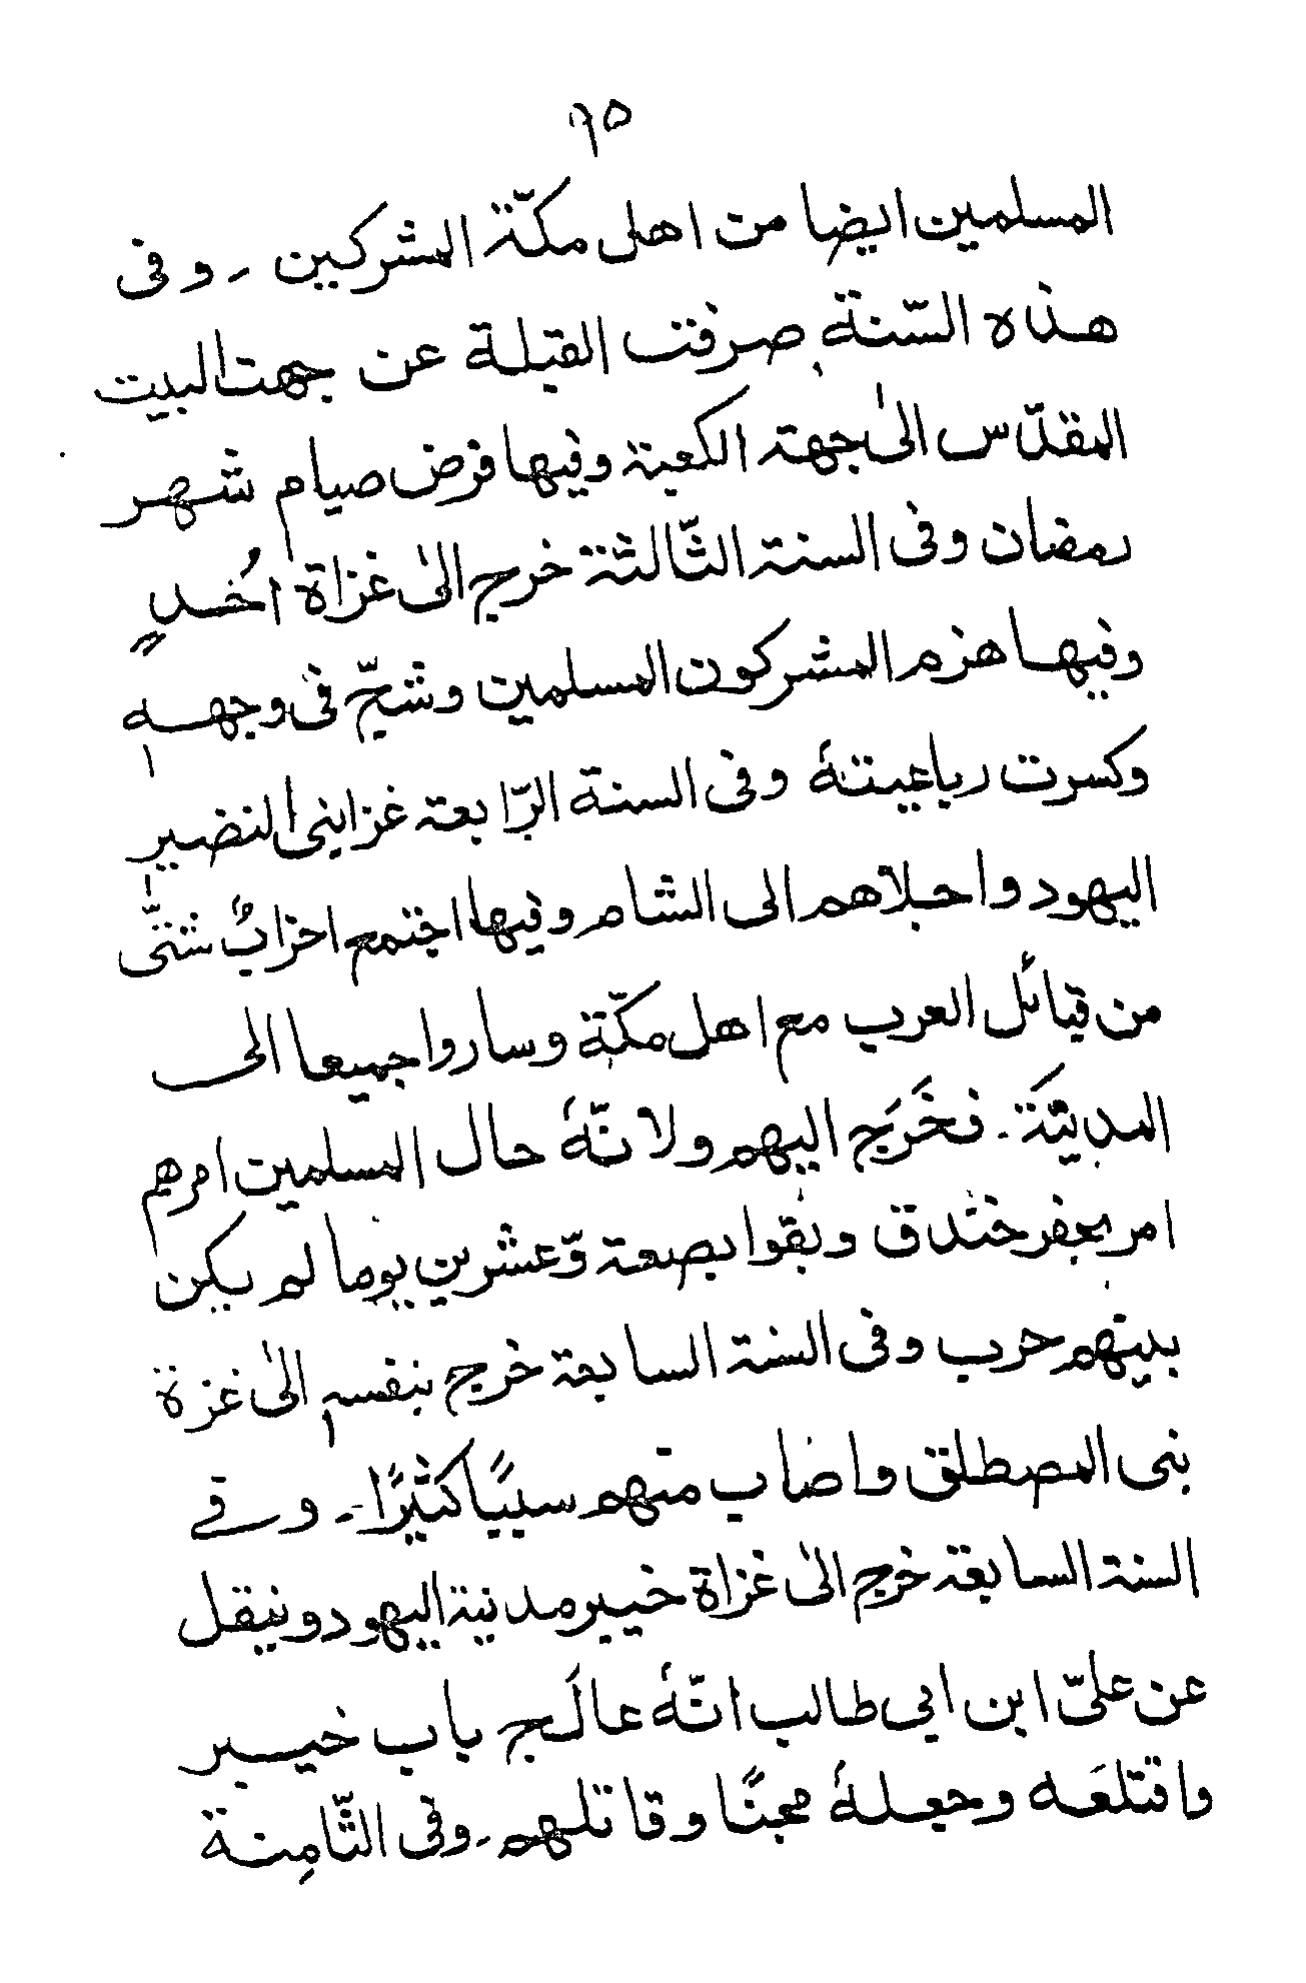 ٦٥
المسلمين ايضا من اهل مكّة المشركين ۔ و فى
هذه السّنة صرفت القبلة عن جهت البيت
المقدّس الىٰ جهة الكعبة وفيها فرض صيام شهر
رمضان وفى السنة الثّالثة خرج الىٰ غزاة اُخدٍ
وفيها هزم المشركون المسلمين وشجّ فى وجههٖ
وكسرت رباعيتهٗ وفى السنة الرّابعة غزا بنى النضير
اليهود واجلاهم الى الشام وفيها اجتمع احزابٌ شتّى
من قبائل العرب مع اهل مكّة وساروا جميعا الى
المدينَة ۔ فخَرَج اليهم ولانّهٗ حال المسلمين امرهم
امر بحفر خندق وبقوا بضعة وّعشرين يوما لم يكن
بينهم حرب وفى السنة السابعة خرج بنفسهٖ الىٰ غزة
بنى المصطلق واضاب منهم سبيًا كثيرًا ۔ و فے
السنة السابعة خرج الىٰ غزاة خيبر مدينة اليهود وينقل
عن علىّ ابن ابى طالب انّهٗ عالَج باب خيبر
واقتلعَه وجعلهٗ مجنًا وقاتلهم ۔ وفى الثّامِنة